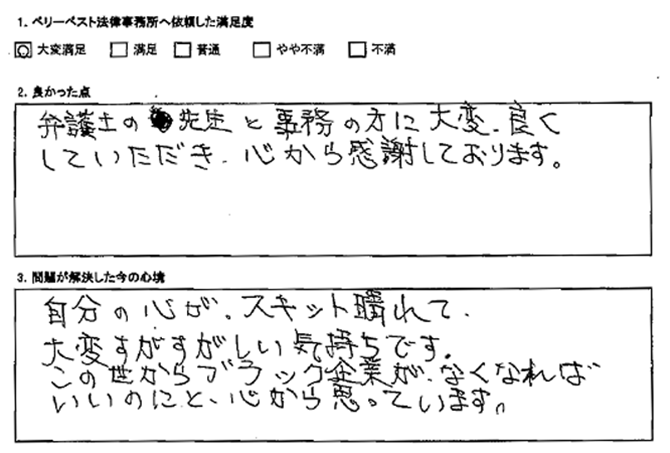 1. ベリーベスト法律事務所へ依頼した満足度
大変満足 満足 普通 やや不満 不満
2. 良かった点
弁護士の 先生と事務の方に大変、良く
していただき、心から感謝しております。
3. 問題が解決した今の心境
自分の心が、スキット晴れて、
大変すがすがしい気持ちです。
この世からブラック企業が、なくなれば
いいのにと、心から思っています。